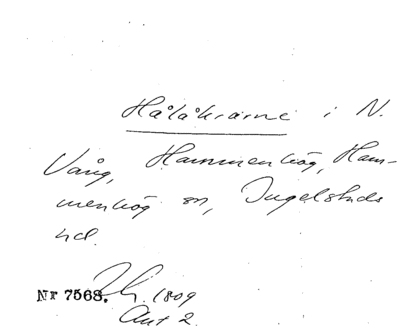 Hålåkrarne i N.
Vång, Hammenhög, Ham-
menhög sn, Ingelstads
hd.
Nr 7568. 1809
Akt 2.